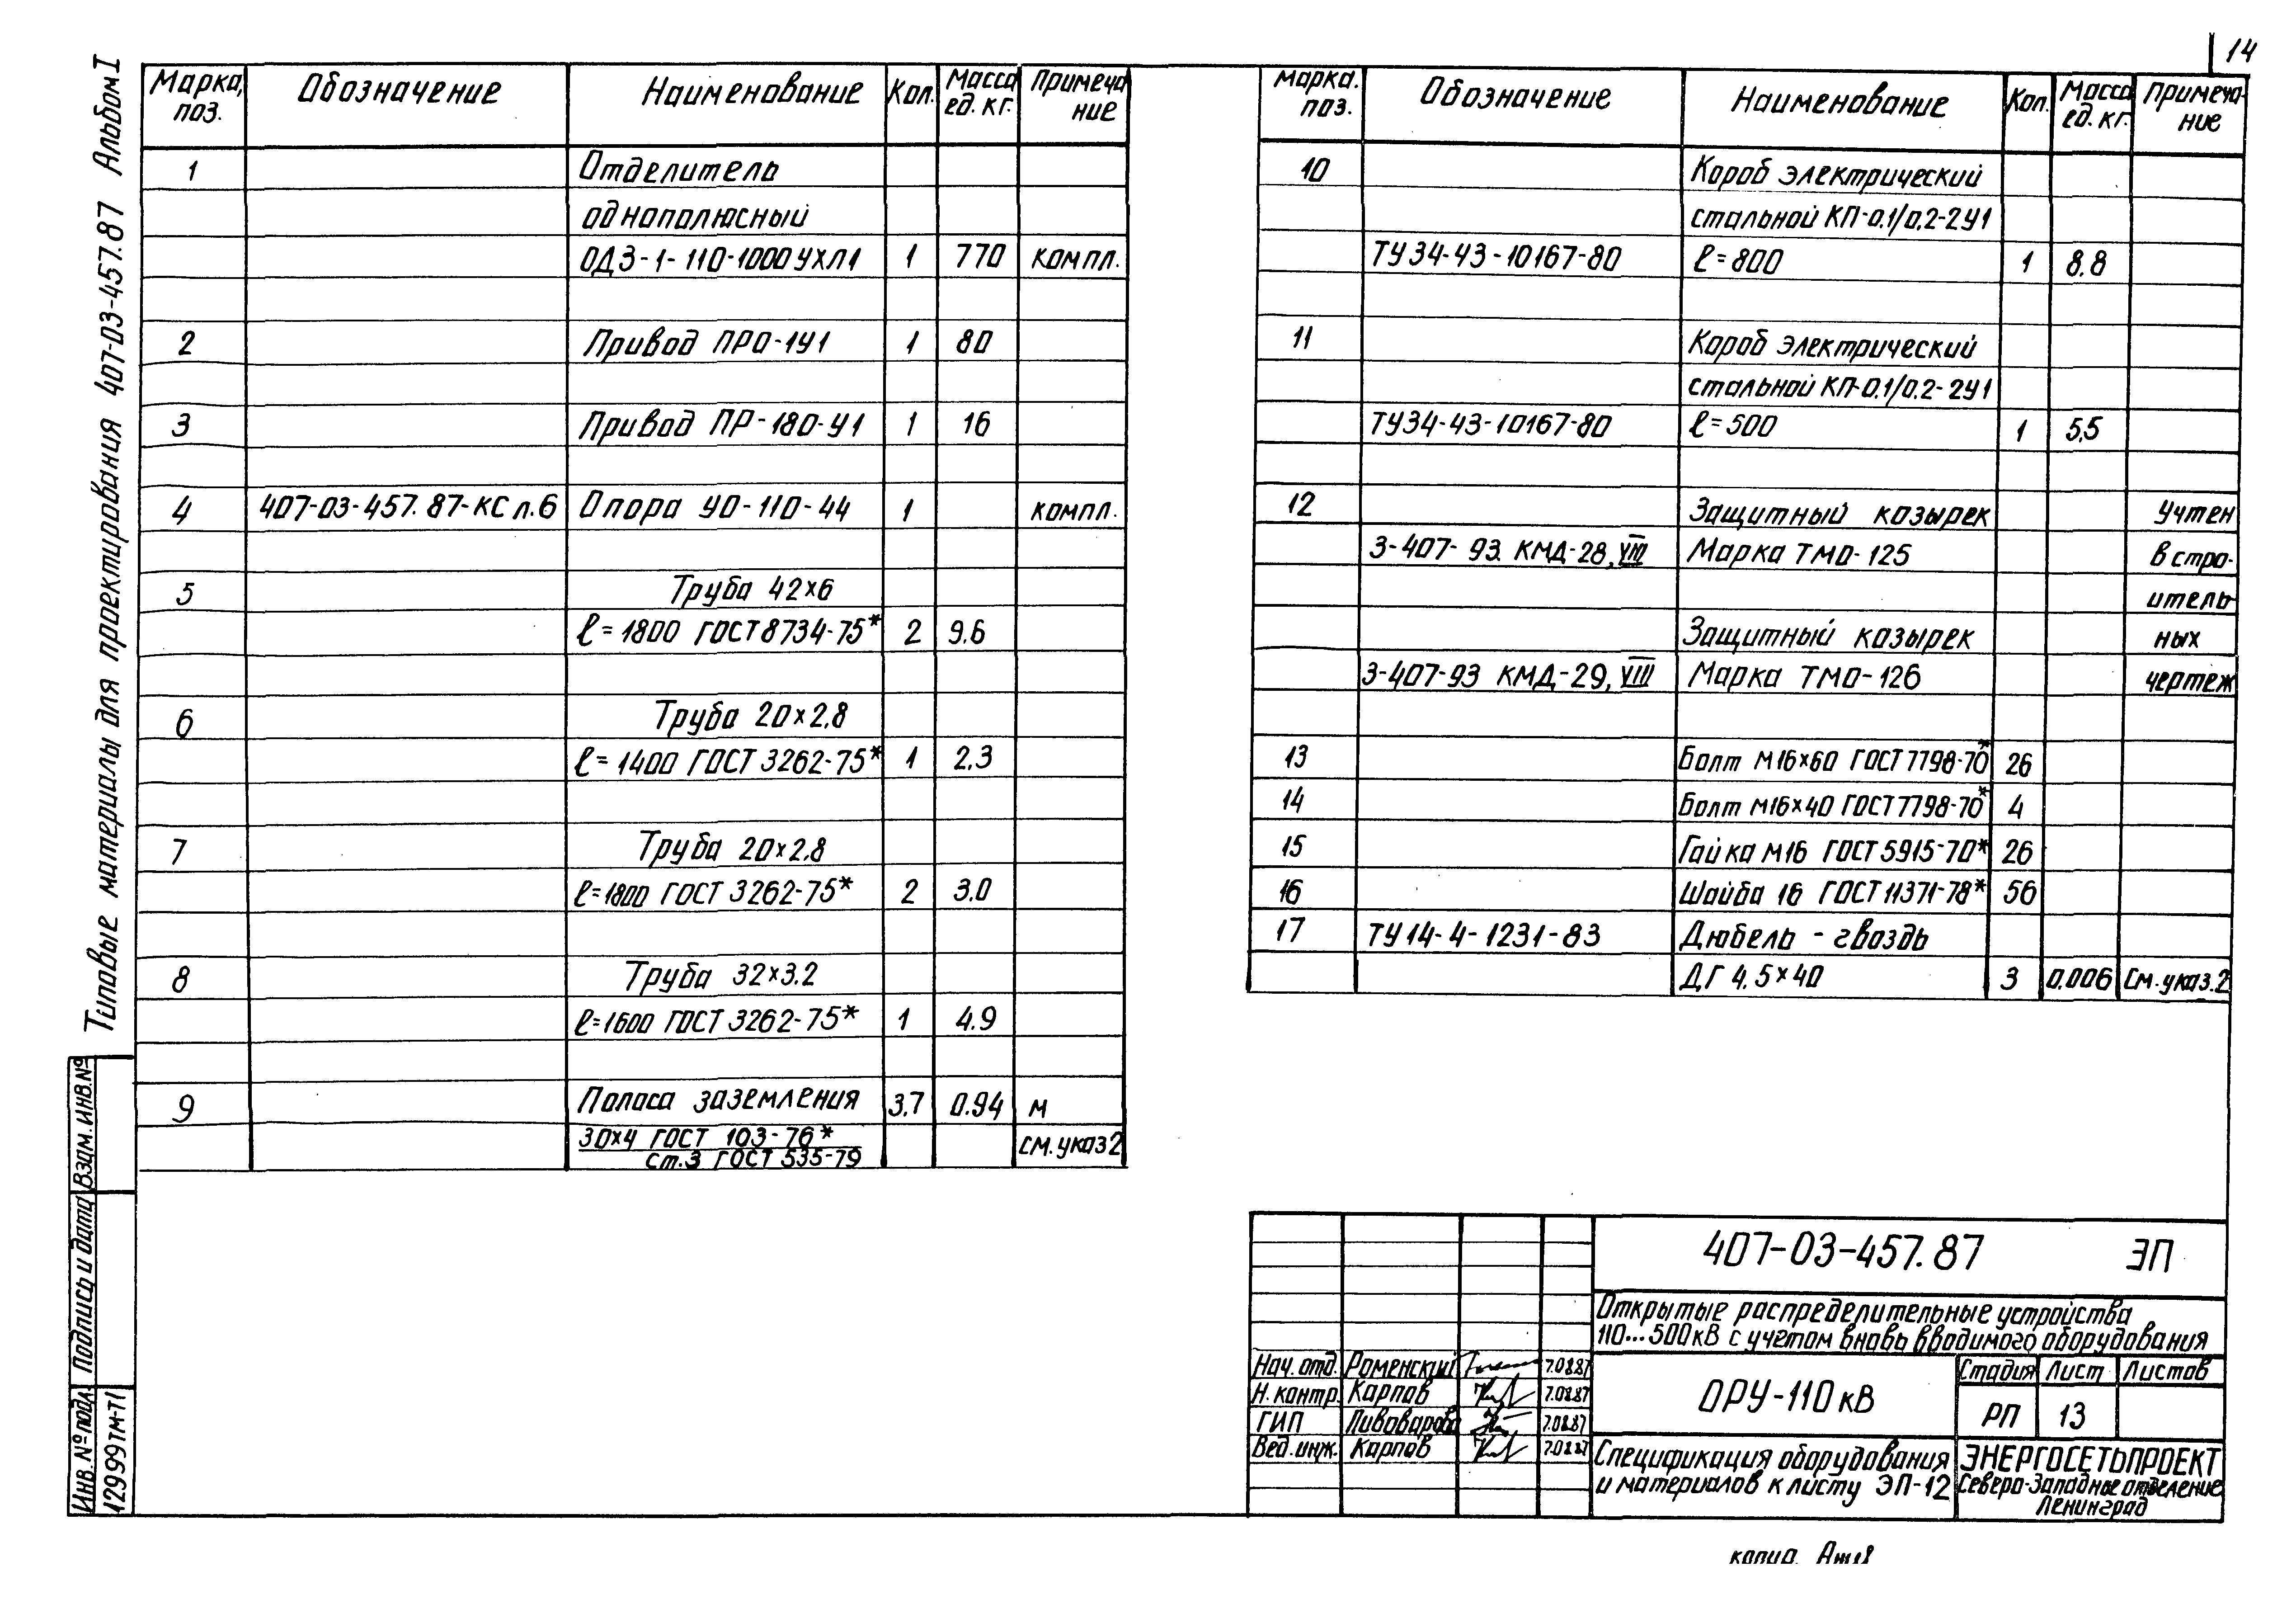 14
Типовые материалы для проектирования 407-03-457.87 Альбом I
Марка, поз. Обозначение Наименование Кол. Масса ед. кг. Примечание
1 Отделитель
однополюсный
ОДЗ-1-110-1000 УХЛ1 1 770 компл.
2 Привод ПРО-1У1 1 80
3 Привод ПР-180-У1 1 16
4 407-03-457.87-КС л.6 Опора УО-110-44 1 компл.
5 Труба 42×6
ℓ=1800 ГОСТ 8734-75* 2 9.6
6 Труба 20×2,8
ℓ=1400 ГОСТ 3262-75* 1 2,3
7 Труба 20×2,8
ℓ=1800 ГОСТ 3262-75* 2 3.0
8 Труба 32×3.2
ℓ=1600 ГОСТ 3262-75* 1 4.9
9 Полоса заземления 3,7 0.94 м
30×4 ГОСТ 103-76* см. указ 2
Ст.3 ГОСТ 535-79
Марка. поз. Обозначение Наименование Кол. Масса ед. кг. Примеча-ние
10 Короб электрический
стальной КП-0,1/0,2-2У1
ТУ 34-43-10167-80 ℓ=800 1 8,8
11 Короб электрический
стальной КП-0,1/0,2-2У1
ТУ34-43-10167-80 ℓ=500 1 5,5
12 Защитный козырек Учтен
3-407-93 КМД-28, VIII Марка ТМО-125 в стро-
итель
Защитный козырек ных
3-407-93 КМД-29, VIII Марка ТМО-126 чертеж
13 Болт М16×60 ГОСТ 7798-70* 26
14 Болт М16×40 ГОСТ 7798-70* 4
15 Гайка М16 ГОСТ 5915-70* 26
16 Шайба 16 ГОСТ 11371-78* 56
17 ТУ 14-4-1231-83 Дюбель - гвоздь
ДГ 4,5×40 3 0,006 См. указ. 2
Взам. инв. №
Подпись и дата
Инв. № подл.
12999тм-Т1
407-03-457.87 ЭП
Открытые распределительные устройства
110...500 кВ с учетом вновь вводимого оборудования
Нач. отд. Роменский 7.08.87
Н. контр. Карпов 7.08.87
ГИП Пивоварова 7.08.87
Вед. инж. Карпов 7.08.87
ОРУ-110 кВ
Стадия Лист Листов
РП 13
Спецификация оборудования
и материалов к листу ЭП-12
ЭНЕРГОСЕТЬПРОЕКТ
Северо-Западное отделение
Ленинград
копир.